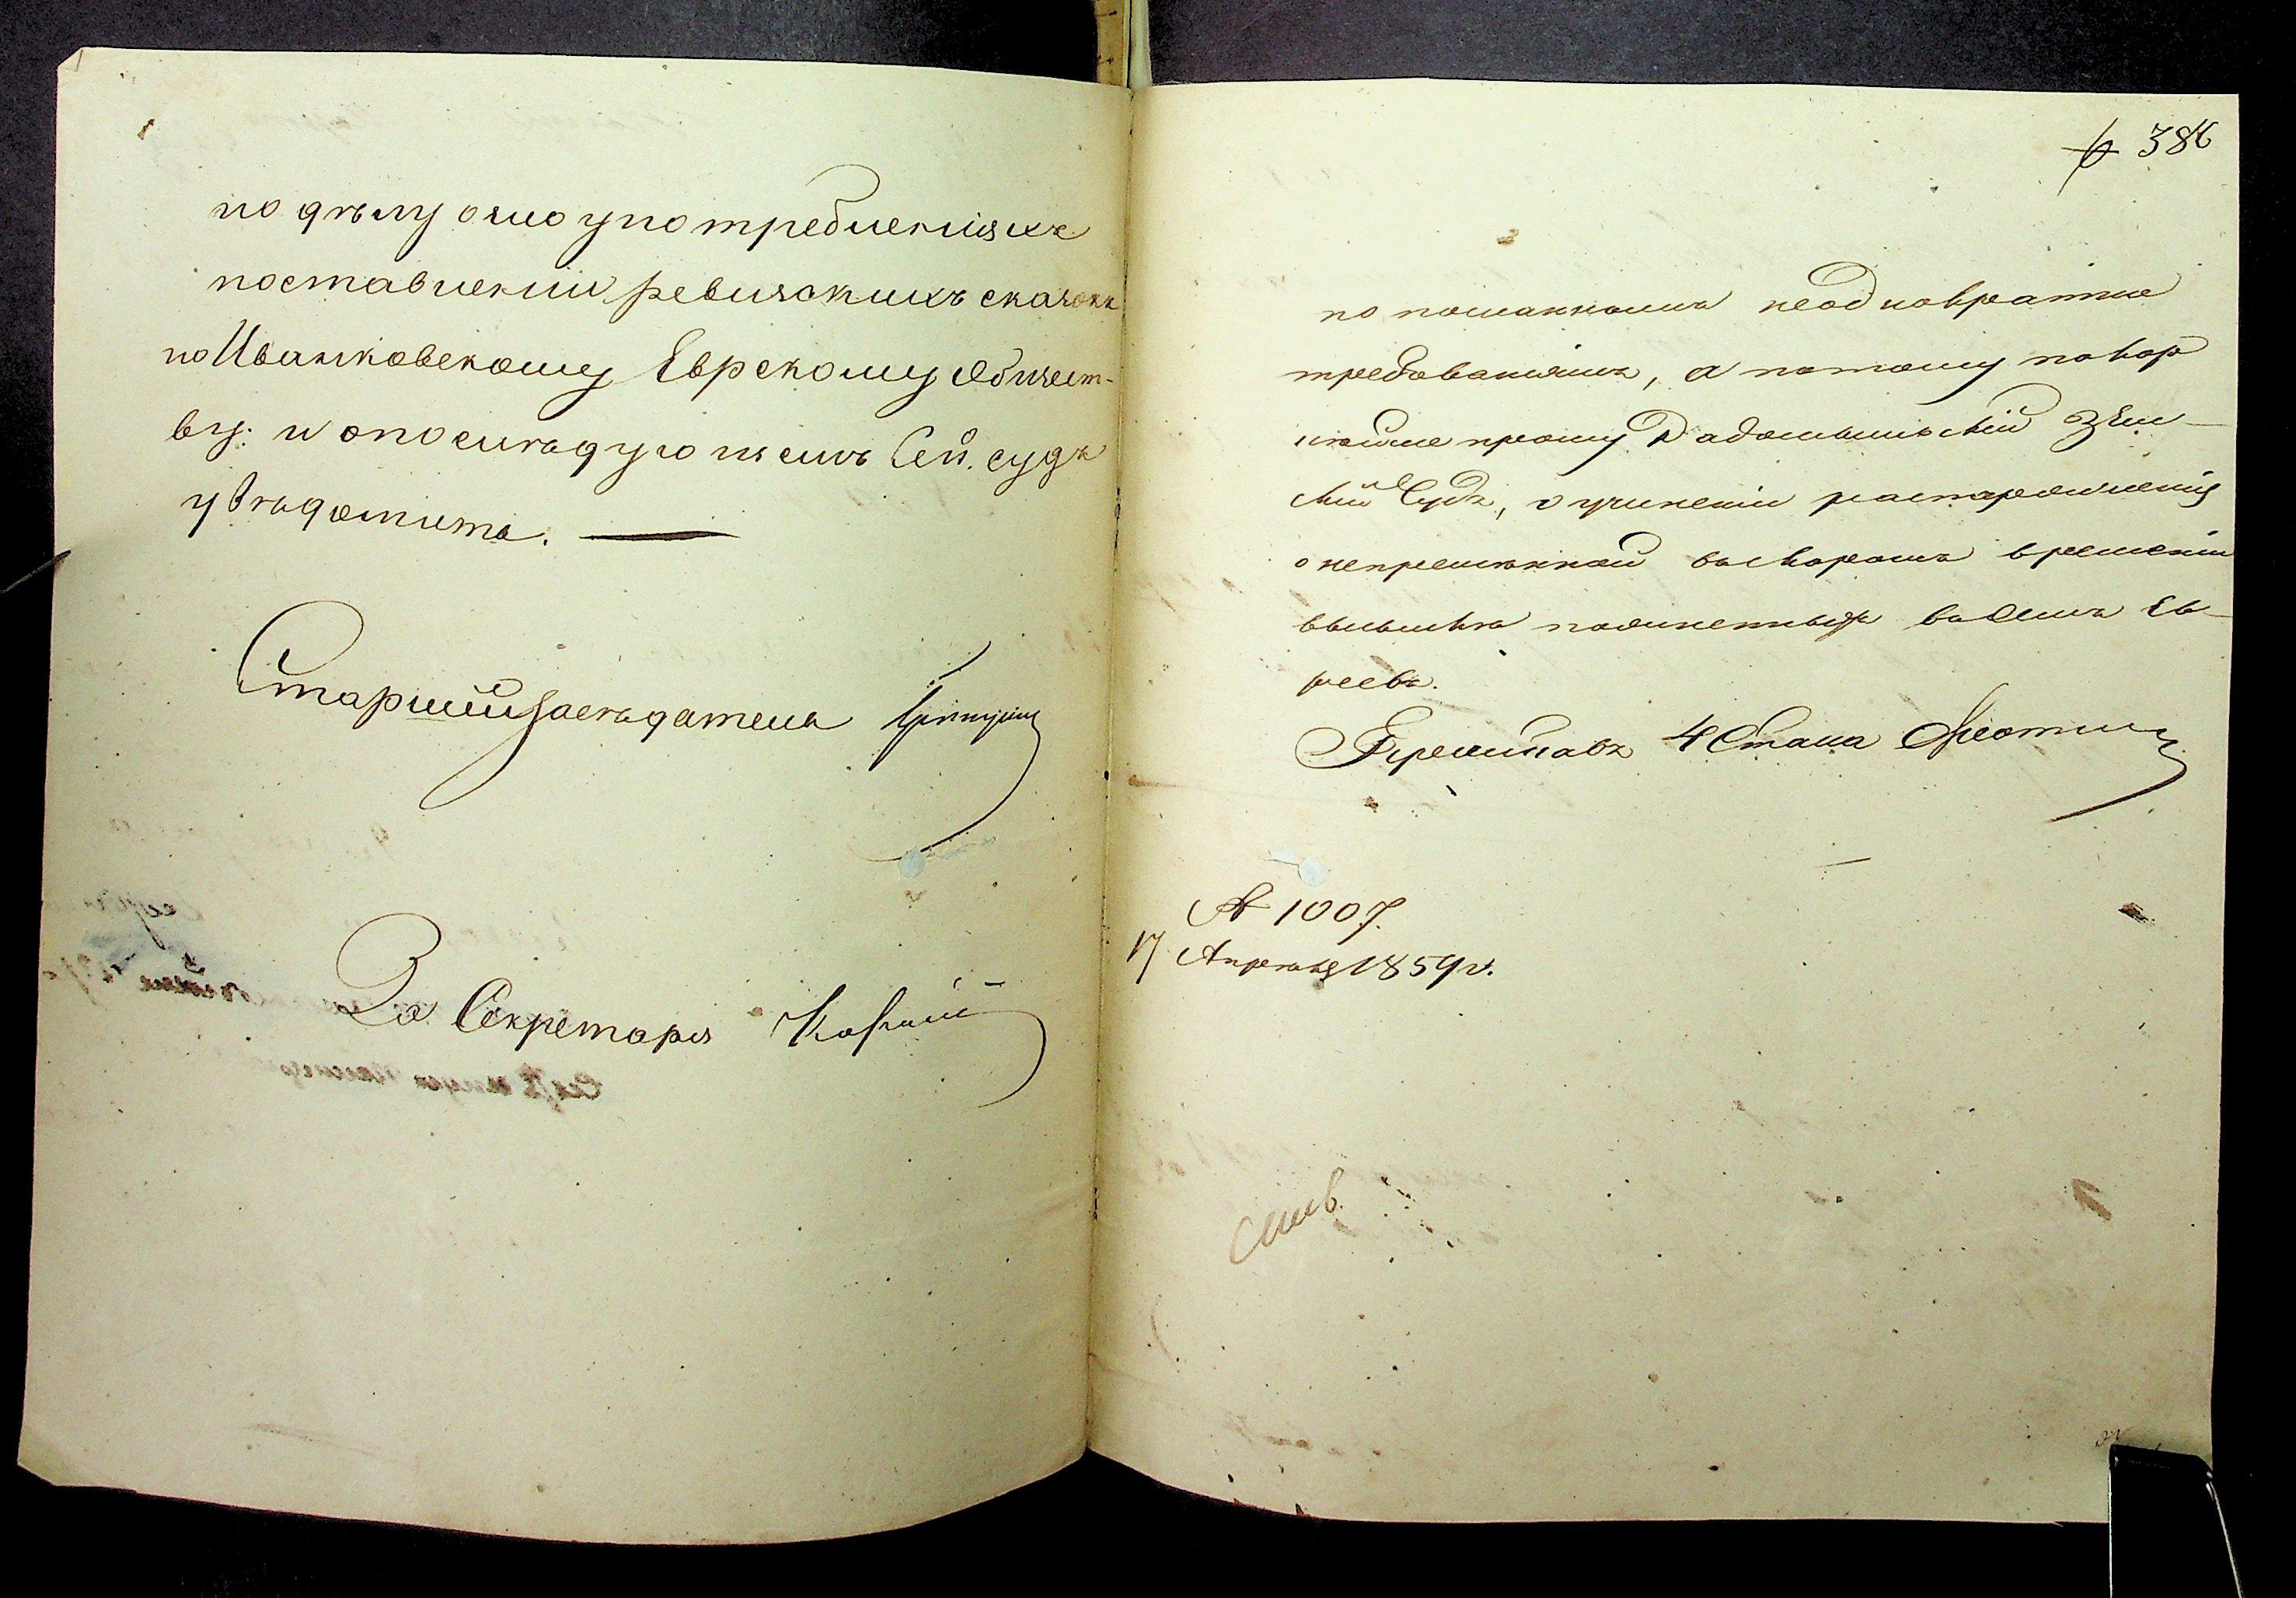 по дѣлу о злоупотребленіяхъ
поставленіи ревизскихъ сказокъ
по Иванковскому Еврскому Общест-
ву: и опослѣдующемъ Сей. судъ
увѣдомить.
Старшій Засѣдатель
За Секретаря
6 386
по посланнымъ неоднократно
требованіямъ, а потому покор
нѣйше прошу Радомысльскій Зем-
скій Судъ, о учиненіи распоряженія
о непремѣнной въ скоромъ времени
высылкѣ поименныхъ въ семъ Ев-
реевъ.
Приставъ 4 Стана
№ 1007.
17 Апрѣля 1859 г.